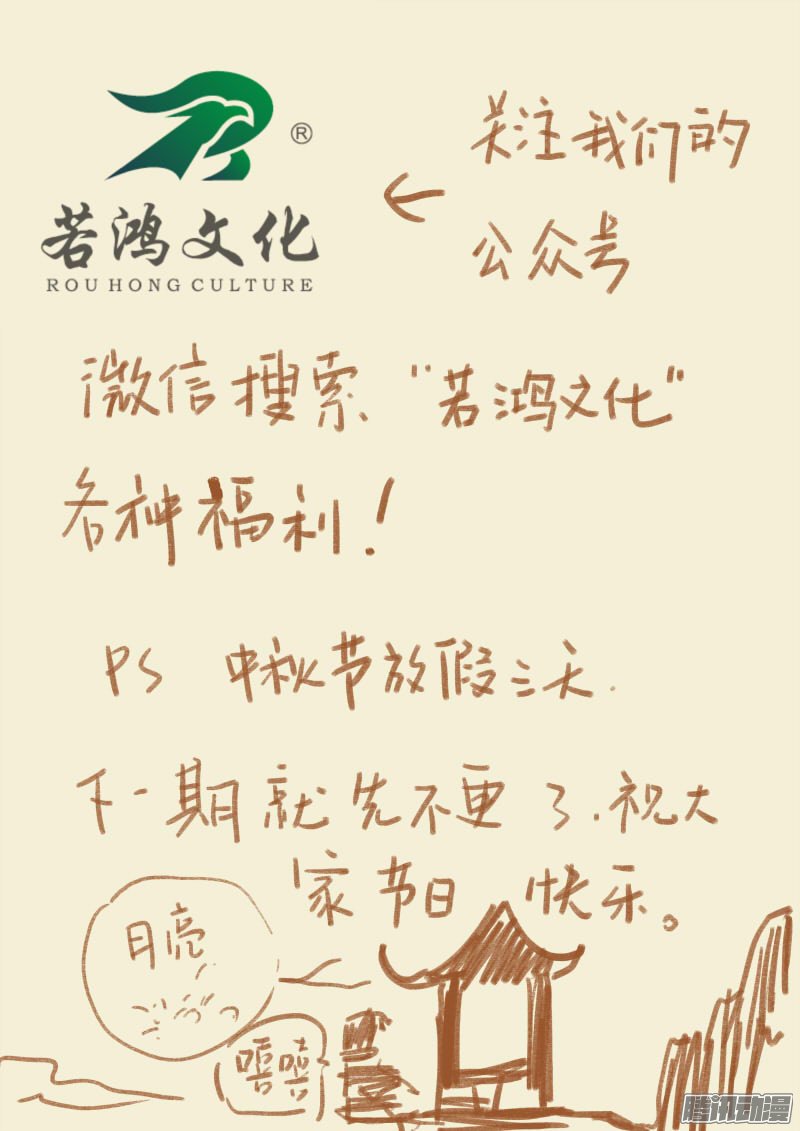 若鸿文化
®
ROU HONG CULTURE
← 关注我们的
公众号
微信搜索“若鸿文化”
各种福利!
PS 中秋节放假三天.
下一期就先不更了.祝大
家节日快乐。
月亮
嘻嘻
腾讯动漫